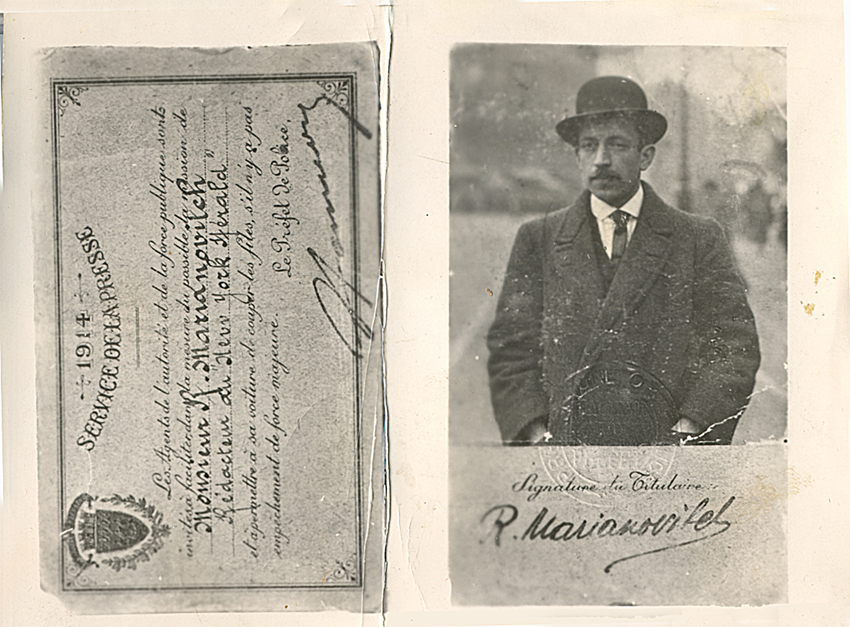 1914
SERVICE DE LA PRESSE
Les Agents de l'autorité et de la force publique sont
invités à faciliter dans la mesure du possible la mission de
Monsieur R. Marianovitch
Rédacteur au "New York Herald"
et à permettre à sa voiture de couper les files, s'il n'y a pas
empêchement de force majeure.
Le Préfet de Police,
Signature du Titulaire:
R. Marianovitch